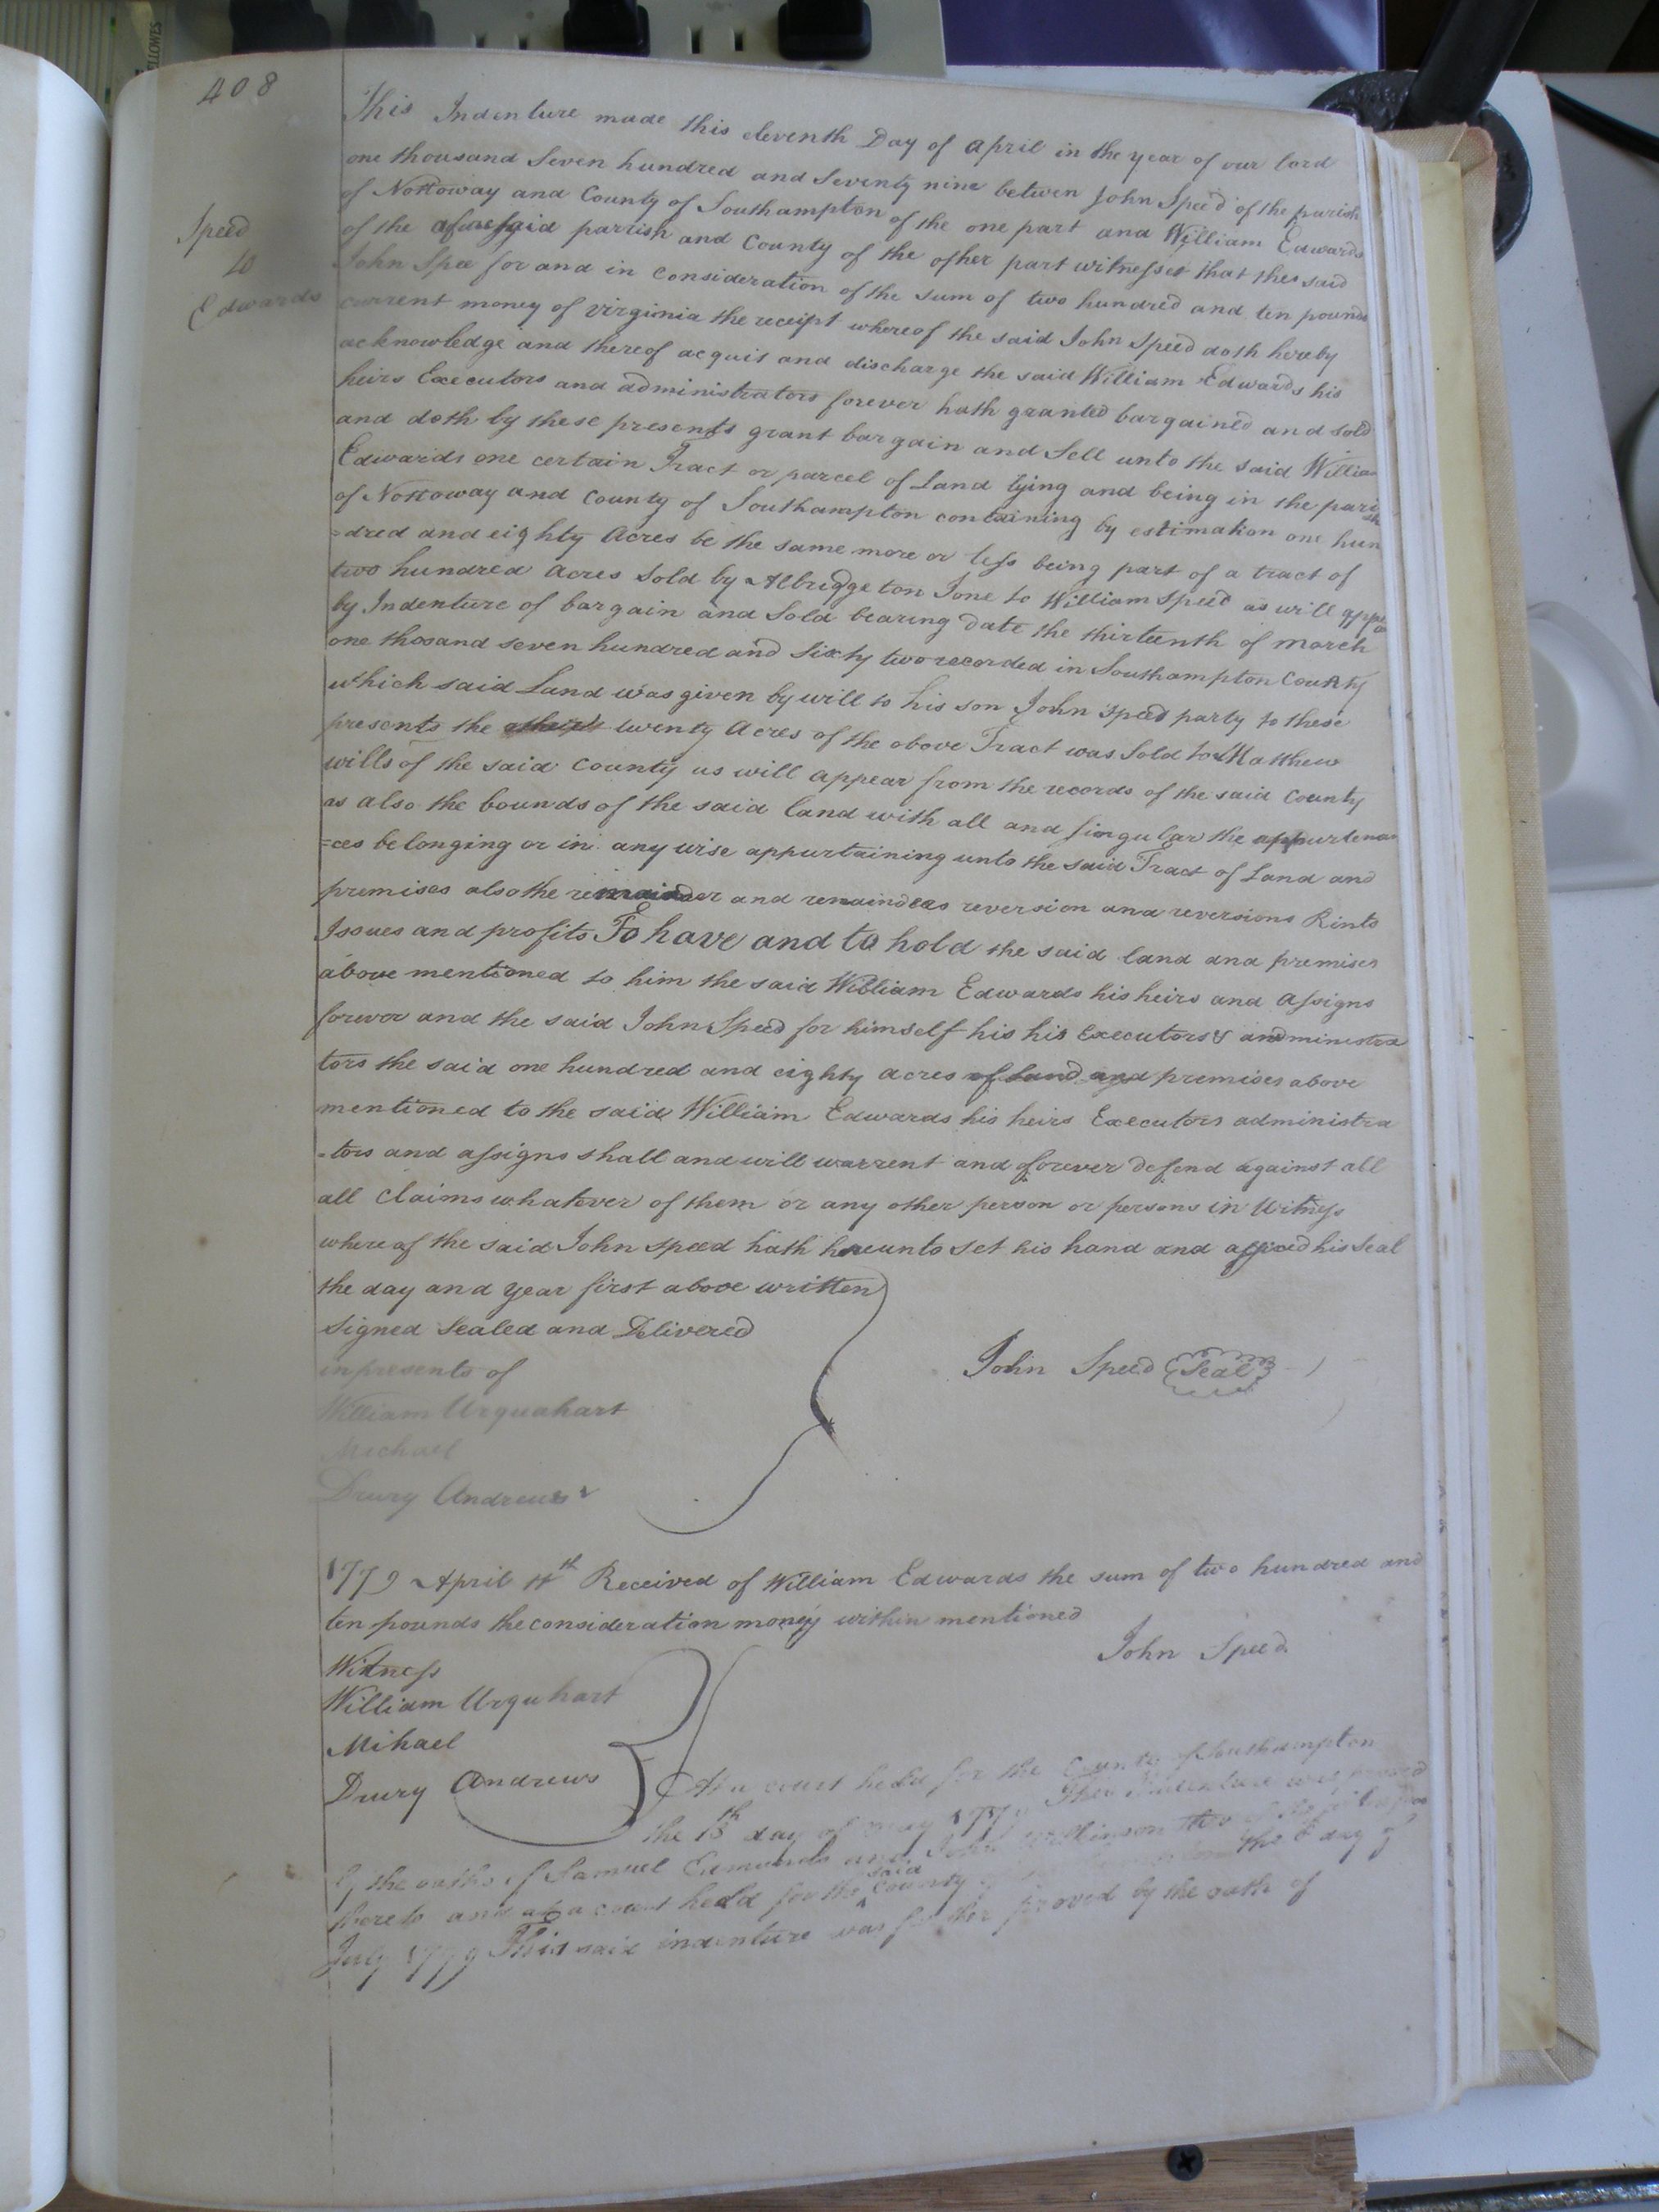 408
This Indenture made this eleventh Day of April in the year of our lord
one thousand Seven hundred and Seventy nine betwen John Speed of the parish
of Nottoway and County of Southampton of the one part and William Edwards
of the aforesaid parrish and County of the other part witnesses that the said
Speed
to
Edwards
John Spee for and in Consideration of the sum of two hundred and ten pounds
current money of virginia the receipt whereof the said John Speed doth hereby
acknowledge and thereof acquit and discharge the said William Edwards his
heirs Executors and administrators forever hath granted bargained and sold
and doth by these presents grant bargain and Sell unto the said William
Edwards one certain Tract or parcel of Land lying and being in the parish
of Nottoway and County of Southampton containing by estimation one hun
=dred and eighty Acres be the same more or less being part of a tract of
two hundred Acres Sold by Albridgeton Jone to William Speed as will appear
by Indenture of bargain and Sold bearing date the thirteenth of march
one thosand seven hundred and Sixty two recorded in Southampton County
which said Land was given by will to his son John Speed party to these
presents the twenty Acres of the above Tract was Sold to Matthew
wills of the said County as will appear from the records of the said County
as also the bounds of the said land with all and singular the appurtenan
=ces belonging or in any wise appurtaining unto the said Tract of Land and
premises also the remainder and remainders reversion and reversions Rints
Issues and profits To have and to hold the said land and premises
above mentioned to him the said William Edwards his heirs and assigns
forever and the said John Speed for himself his his Executors & andministra
tors the said one hundred and eighty acres of Land and premises above
mentioned to the said William Edwards his heirs Executors administra
-tors and assigns shall and will warrent and forever defend against all
all Claims whatever of them or any other person or persons in Witness
whereof the said John speed hath hereunto set his hand and affixed his Seal
the day and year first above written
Signed Sealed and Delivered
in presents of
John Speed Seal
William Urquahart
Michael
Drury Andrews
1779 April 11th Received of William Edwards the sum of two hundred and
ten pounds the consideration money within mentioned
John Speed
Witness
William Urquhart
Mihael
Drury Andrews
At a court held for the County of Southampton
the 13th day of May 1779 This Indenture was proved
by the oaths of Samuel Edmunds and John
thereto and at a court held for the said County the 8 day of
July 1779 This said indenture was further proved by the oath of